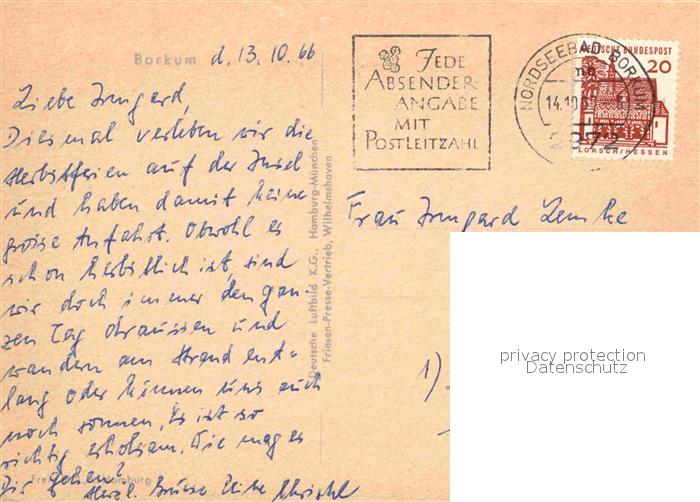 Borkum d. 13.10.66
Liebe Irmgard,
Diesmal verleben wir die
Herbstferien auf der Insel
und haben damit keine
grosse Anfahrt. Obwohl es
schon herbstlich ist, sind
wir doch immer den gan-
zen Tag draussen und
wandern am Strand ent-
lang oder können uns auch
noch sonnen, Es ist so
richtig erholsam. Wie mag es
Dir gehen?
Herzl. Grüsse Deine Christel
Deutsche Luftbild K.G., Hamburg-München
Friesen-Presse-Vertrieb, Wilhelmshaven
JEDE
ABSENDER-
ANGABE
MIT
POSTLEITZAHL
NORDSEEBAD BORKUM
14.10.66
2972
DEUTSCHE BUNDESPOST
20
LORSCH/HESSEN
Frau Irmgard Lemke
1)
privacy protection
Datenschutz